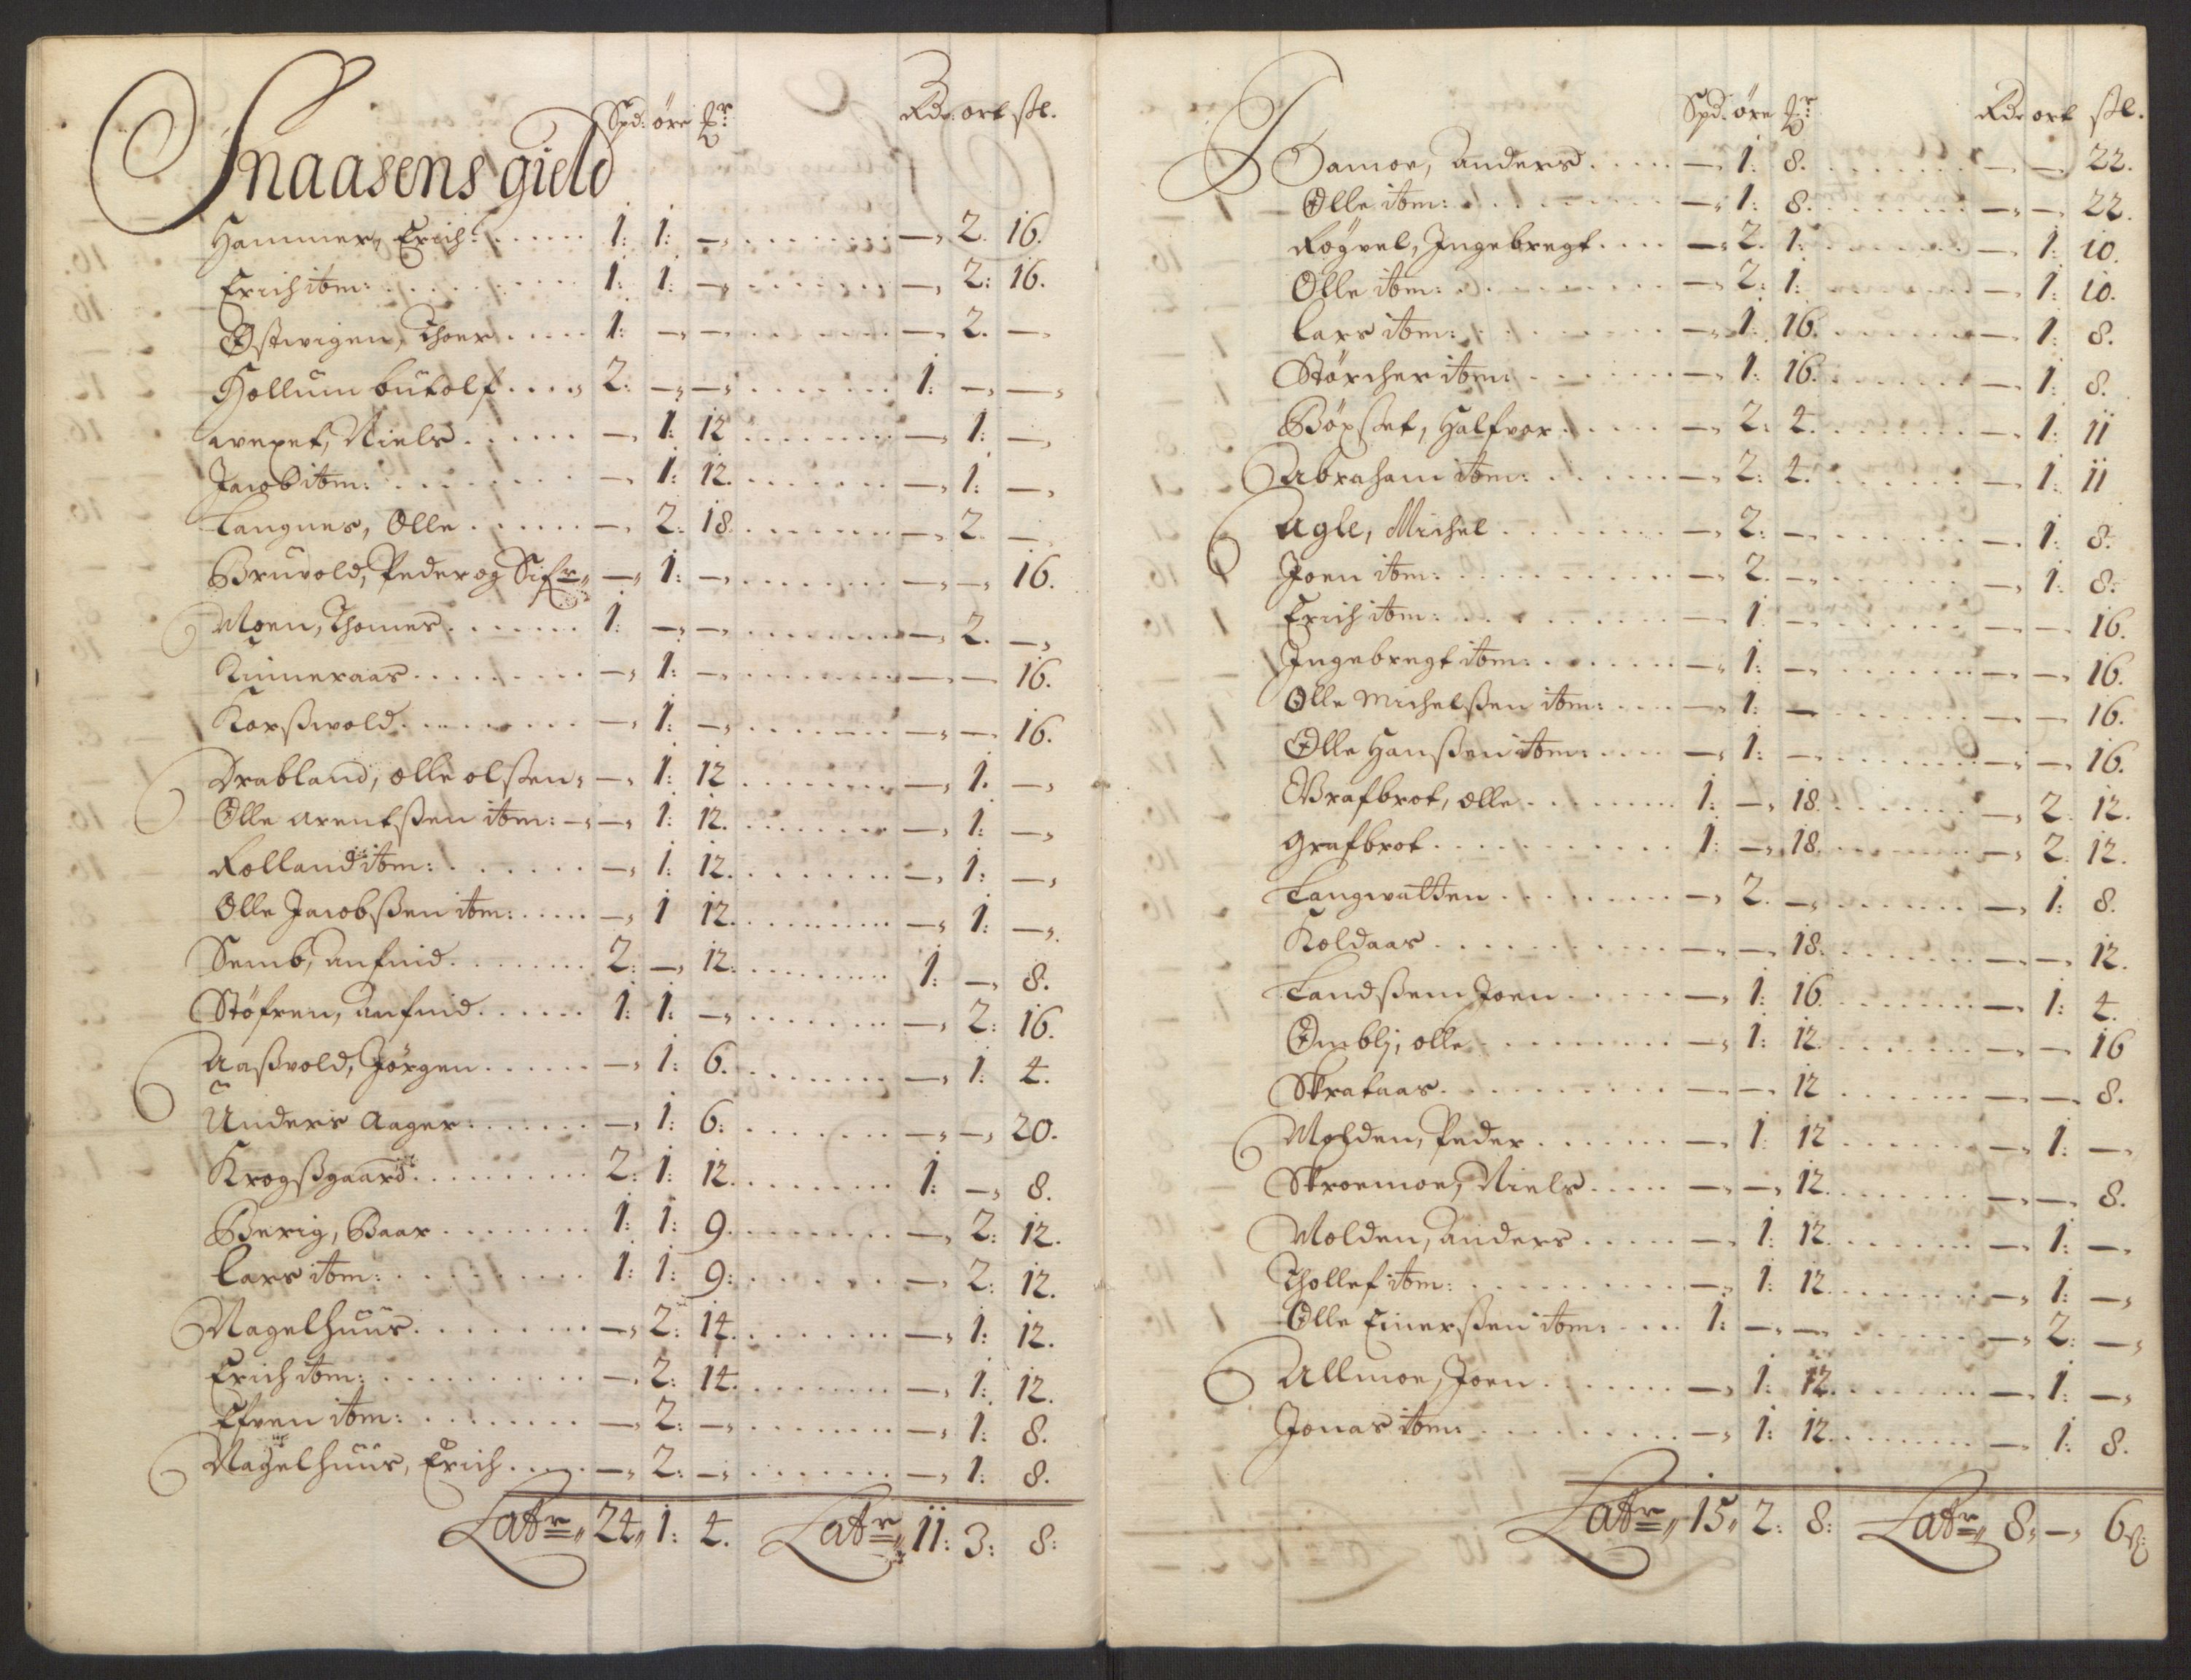 Spd: öre ℔r Rdr ort sk.
Snaasens gield
Hammer, Erich: . . . . . 1: 1: — . . . . . . . — 2. 16.
Erich itm: . . . . . . . 1: 1: — . . . . . . . — 2: 16.
Østwigen, Thoer . . . . . 1: — — . . . . . . . — 2. —
Hollum butolf . . . . 2: — — . . . . . . . 1: — —
avexet, Niels . . . . . — 1: 12 . . . . . . . — 1: —
Jacob itm: . . . . . . . — 1: 12. . . . . . . — 1: —
Langnes, Olle . . . . . — 2: 18 . . . . . . . — 2 —
Bruvold, Peder og Sifr — 1: — . . . . . . . — — 16.
Moen, Thomes . . . . . . 1: — — . . . . . . . — 2. —
Kinneraas . . . . . . . — 1: — . . . . . . . — — 16.
Korsswold . . . . . . . — 1: — . . . . . . . — — 16.
Drabland, olle olssen, — 1: 12 . . . . . . . — 1. —
Olle arentssen itm: — — 1: 12. . . . . . . — 1: —
Rolland itm: . . . . . . — 1: 12. . . . . . . — 1: —
Olle Jacobssen itm: . . . . — 1 12. . . . . . . — 1: —
Semb, anfind . . . . . . 2: — 12. . . . . . . 1: — 8.
Stöfren, anfind . . . . . 1: 1: — . . . . . . . — 2: 16.
Aassvold, Jörgen . . . . . — 1: 6. . . . . . . — 1: 4.
Anders Aager . . . . . . — 1: 6: . . . . . . . — — 20.
Krogssgaard . . . . . . . 2: 1: 12. . . . . . . 1: — 8.
Berig, Baar . . . . . . . 1: 1: 9. . . . . . . — 2: 12.
Lars itm: . . . . . . . . 1: 1: 9: . . . . . . . — 2: 12.
Nagelhuus . . . . . . . — 2: 14. . . . . . . — 1: 12.
Erich itm: . . . . . . . — 2: 14. . . . . . . — 1: 12.
Efven itm: . . . . . . . — 2: — . . . . . . . — 1: 8.
Nagelhuus, Erich . . . . — 2: — . . . . . . . — 1: 8.
Latr 24 1: 4. Latr 11: 3: 8:
Spd. öre ℔r Rdr ort sk.
Damoe, Anders . . . . . — 1: 8. . . . . . . — — 22.
Olle itm: . . . . . . . — 1: 8. . . . . . . — — 22.
Rögvel, Ingebregt . . . . — 2. 1: . . . . . . — 1: 10.
Olle itm: . . . . . . . — 2: 1: . . . . . . — 1: 10.
Lars itm: . . . . . . . — 1: 16. . . . . . . — 1: 8.
Störcher itm: . . . . . . — 1: 16. . . . . . . — 1: 8.
Böxset, Halfvor . . . . . — 2: 4. . . . . . . — 1: 11
Abraham itm: . . . . . . — 2: 4. . . . . . . — 1: 11
Agle, Michel . . . . . . — 2: — . . . . . . — 1: 8.
Joen itm: . . . . . . . — 2. — . . . . . . — 1: 8:
Erich itm: . . . . . . . — 1: — . . . . . . — — 16.
Ingebregt itm: . . . . . . — 1: — . . . . . . — — 16.
Olle Michelssen itm: . . . — 1: — . . . . . . — — 16.
Olle Hanssen itm: . . . . — 1: — . . . . . . — — 16.
Grafbrot, olle . . . . . . 1: — 18. . . . . . . — 2. 12.
Grafbrot . . . . . . . . 1: — 18. . . . . . . — 2: 12.
Langwatten . . . . . . . — 2. — . . . . . . — 1: 8.
Koldaas . . . . . . . . — — 18. . . . . . . — — 12.
Landssem Joen . . . . . — 1: 16. . . . . . . — 1: 4.
Omblj, olle . . . . . . . — 1: 12. . . . . . . — — 16
Skrataas . . . . . . . . — — 12 . . . . . . — — 8.
Molden, Peder . . . . . . — 1: 12 . . . . . . — 1: —
Skroemoe, Niels . . . . . — — 12. . . . . . . — — 8.
Molden, Anders . . . . . — 1: 12. . . . . . . — 1: —
Thollef itm: . . . . . . . — 1: 12. . . . . . . — 1: —
Olle Einerssen itm: . . . . 1: — — . . . . . . — 2: —
Allmoe, Joen . . . . . . — 1: 12. . . . . . . — 1: —
Jonas itm: . . . . . . . — 1: 12. . . . . . . — 1: 8.
Latr 15 2: 8: Latr 8 — 6